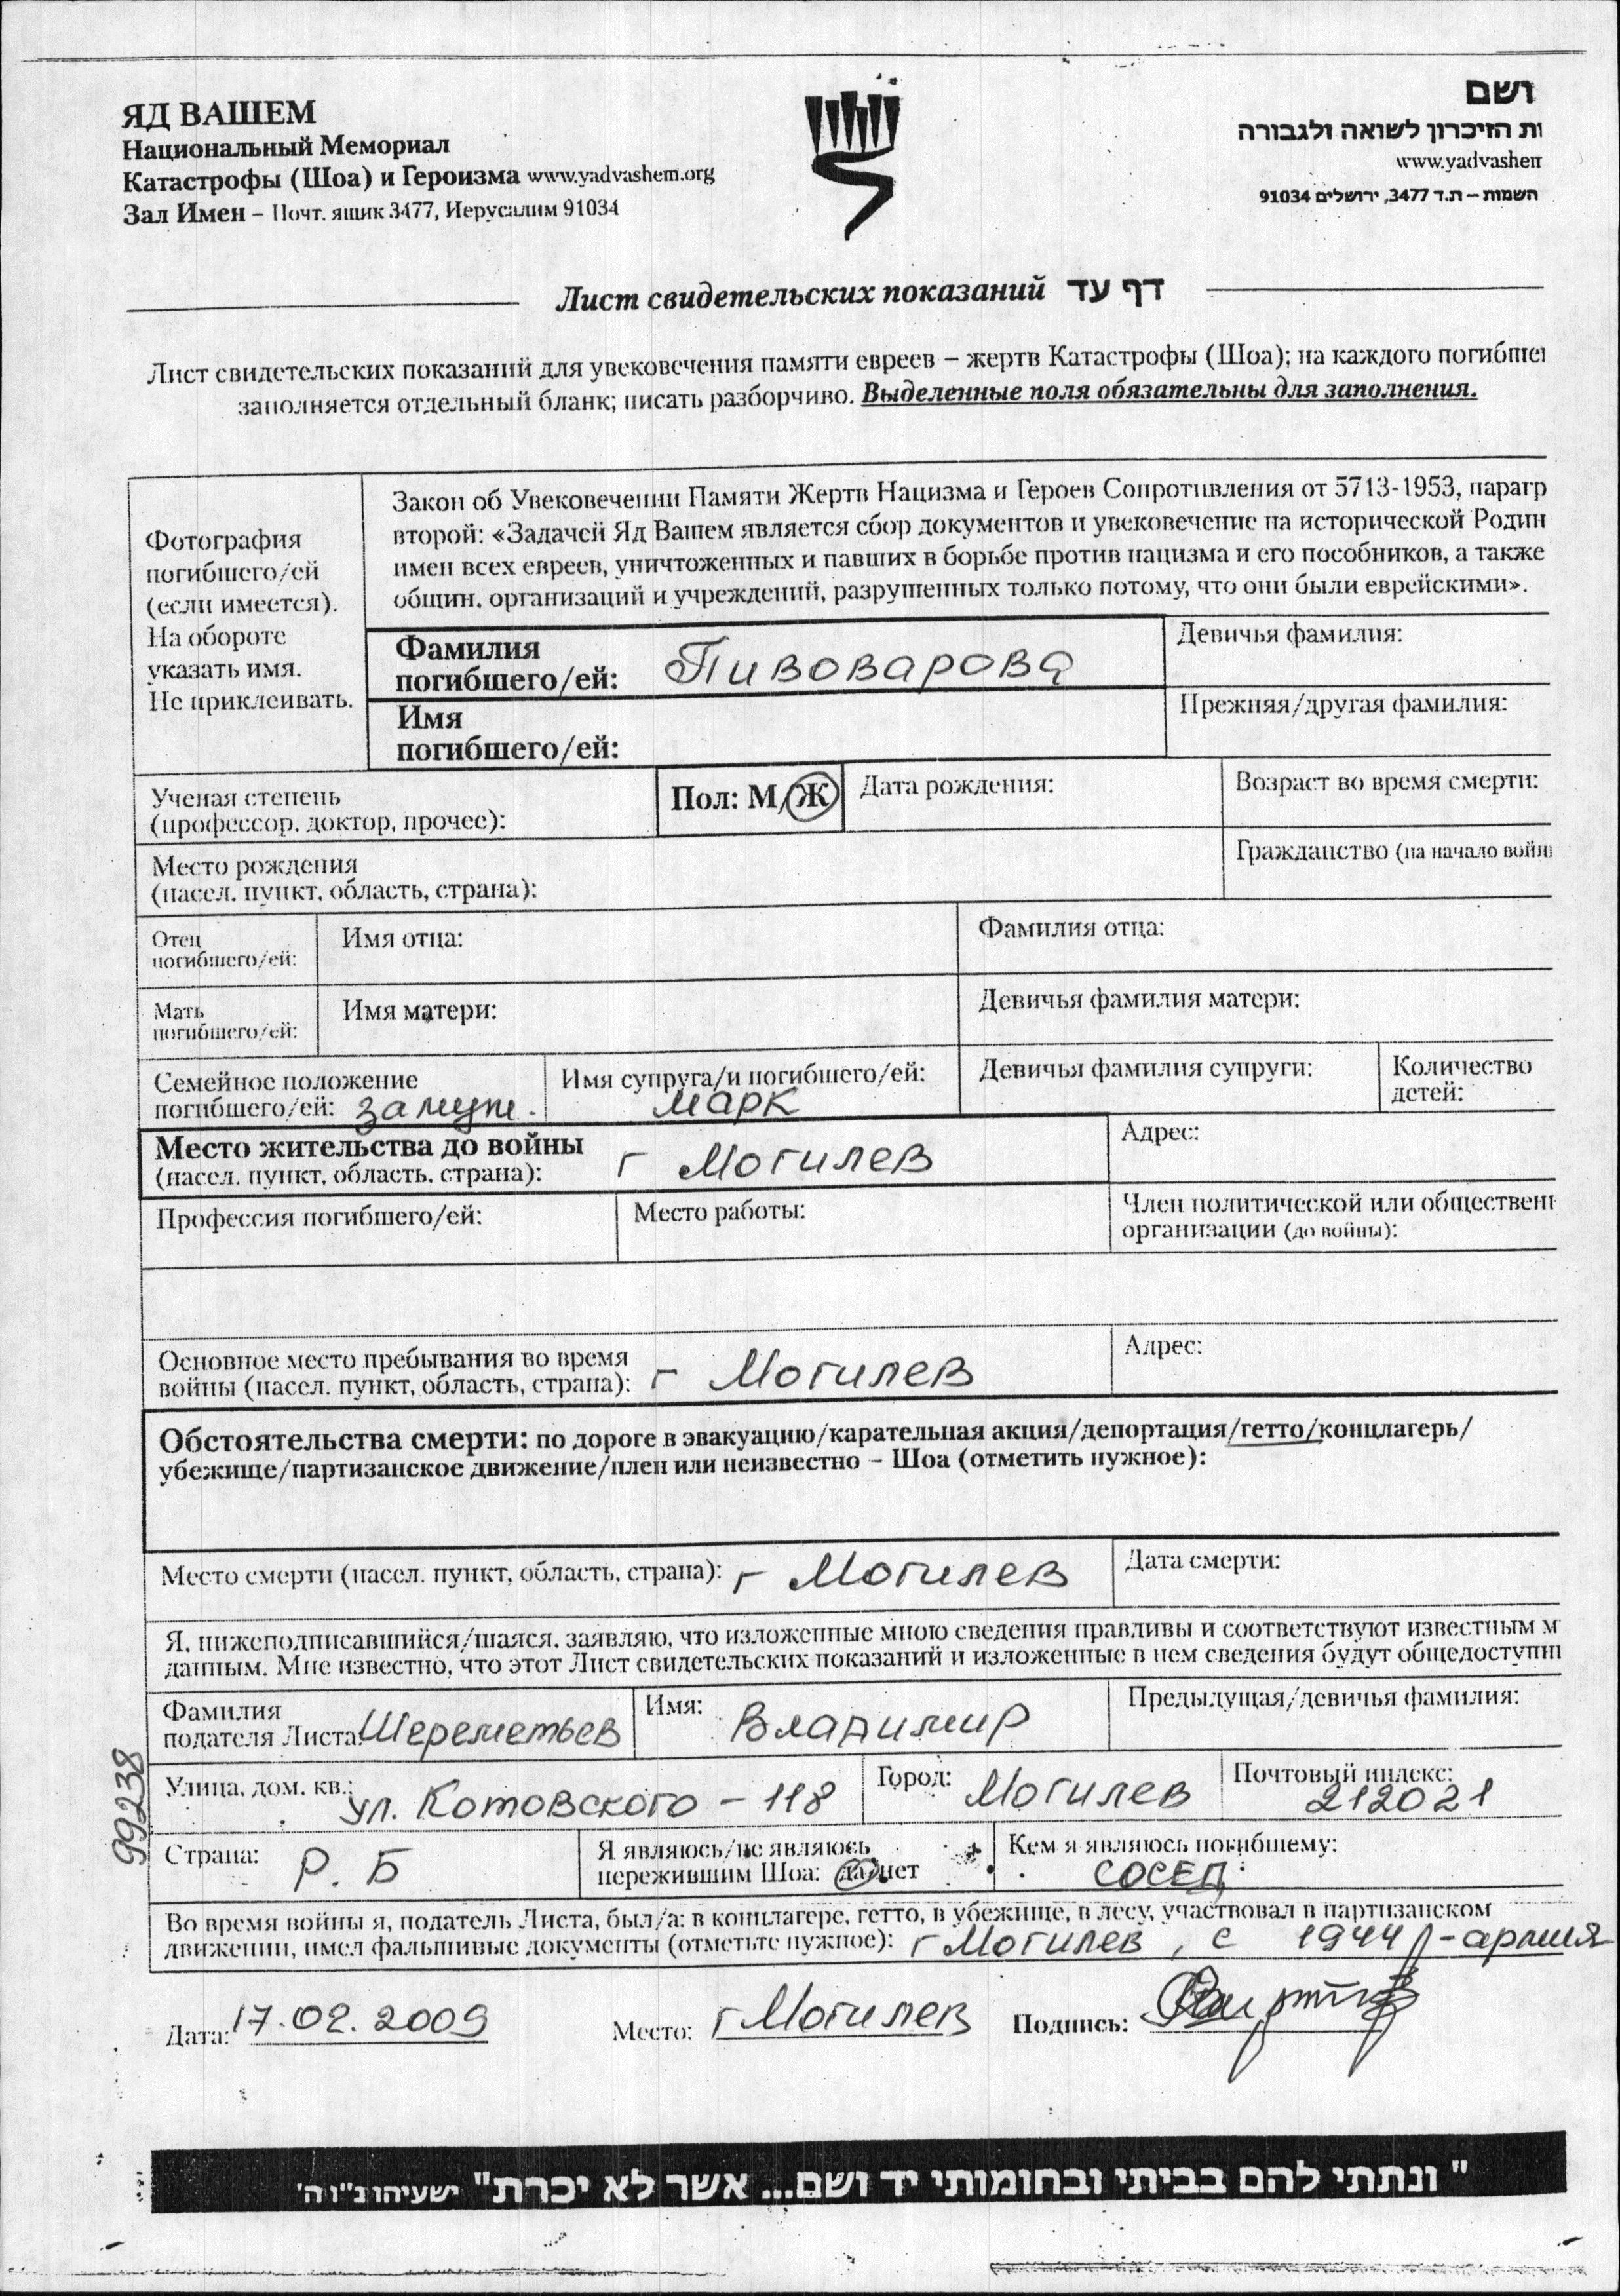 ЯД ВАШЕМ
Национальный Мемориал
Катастрофы (Шоа) и Героизма www.yadvashem.org
Зал Имен – Почт. ящик 3477, Иерусалим 91034
ושם
ות הזיכרון לשואה ולגבורה
www.yadvashem
השמות – ת.ד 3477, ירושלים 91034
Лист свидетельских показаний דף עד
Лист свидетельских показаний для увековечения памяти евреев – жертв Катастрофы (Шоа); на каждого погибшег
заполняется отдельный бланк; писать разборчиво. Выделенные поля обязательны для заполнения.
Фотография
погибшего/ей
(если имеется).
На обороте
указать имя.
Не приклеивать.
Закон об Увековечении Памяти Жертв Нацизма и Героев Сопротивления от 5713-1953, парагр
второй: «Задачей Яд Вашем является сбор документов и увековечение на исторической Родин
имен всех евреев, уничтоженных и павших в борьбе против нацизма и его пособников, а также
общин, организаций и учреждений, разрушенных только потому, что они были еврейскими».
Фамилия
погибшего/ей: Пивоварова
Девичья фамилия:
Имя
погибшего/ей:
Прежняя/другая фамилия:
Ученая степень
(профессор, доктор, прочее):
Пол: М/Ж
Дата рождения:
Возраст во время смерти:
Место рождения
(насел. пункт, область, страна):
Гражданство (на начало войн
Отец
погибшего/ей:
Имя отца:
Фамилия отца:
Мать
погибшего/ей:
Имя матери:
Девичья фамилия матери:
Семейное положение
погибшего/ей: замуж.
Имя супруга/и погибшего/ей:
Марк
Девичья фамилия супруги:
Количество
детей:
Место жительства до войны
(насел. пункт, область, страна): г Могилев
Адрес:
Профессия погибшего/ей:
Место работы:
Член политической или обществен
организации (до войны):
Основное место пребывания во время
войны (насел. пункт, область, страна): г Могилев
Адрес:
Обстоятельства смерти: по дороге в эвакуацию/карательная акция/депортация/гетто/концлагерь/
убежище/партизанское движение/плен или неизвестно – Шоа (отметить нужное):
Место смерти (насел. пункт, область, страна): г Могилев
Дата смерти:
Я, нижеподписавшийся/шаяся, заявляю, что изложенные мною сведения правдивы и соответствуют известным м
данным. Мне известно, что этот Лист свидетельских показаний и изложенные в нем сведения будут общедоступн
Фамилия
подателя Листа: Шереметьев
Имя: Владимир
Предыдущая/девичья фамилия:
99238
Улица, дом, кв.: ул. Котовского – 118
Город: Могилев
Почтовый индекс:
212021
Страна: Р. Б
Я являюсь/не являюсь
пережившим Шоа: да/нет
Кем я являюсь погибшему:
СОСЕД
Во время войны я, податель Листа, был/а: в концлагере, гетто, в убежище, в лесу, участвовал в партизанском
движении, имел фальшивые документы (отметьте нужное): г Могилев, с 1944 г - армия
Дата: 17.02.2009
Место: г Могилев
Подпись:
"ונתתי להם בביתי ובחומותי יד ושם... אשר לא יכרת" ישעיהו נ"ו ה'